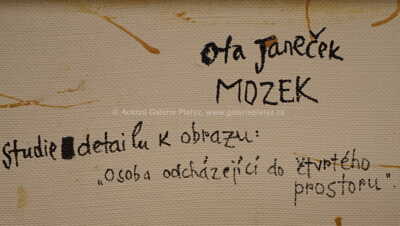 Ota Janeček
MOZEK
© Aukční Galerie Platýz, www.galerieplatyz.cz
Studie detailu k obrazu:
„Osoba odcházející do čtvrtého
prostoru".